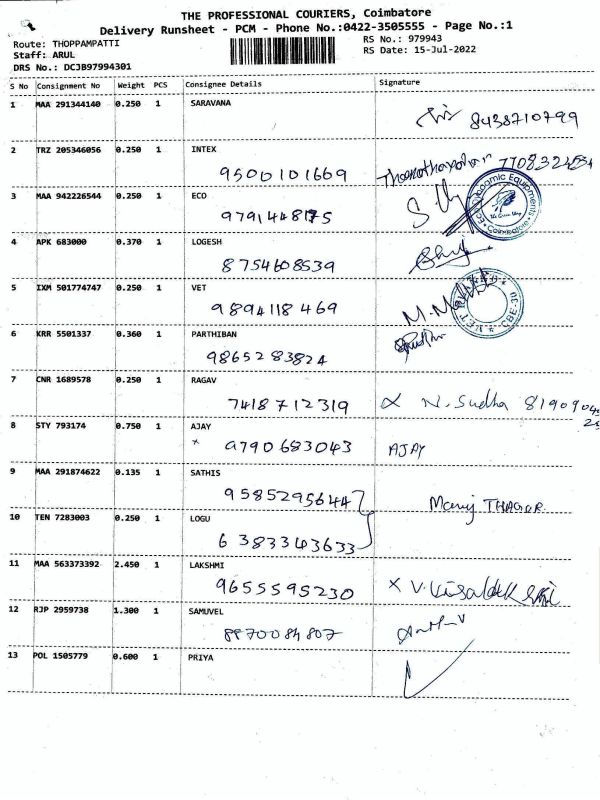 THE PROFESSIONAL COURIERS, Coimbatore
Delivery Runsheet - PCM - Phone No.:0422-3505555 - Page No.:1
Route: THOPPAMPATTI
RS No.: 979943
Staff: ARUL
RS Date: 15-Jul-2022
DRS No.: DCJB97994301
S No Consignment No Weight PCS Consignee Details Signature
1 MAA 291344140 0.250 1 SARAVANA
8438710799
2 TRZ 205346056 0.250 1 INTEX
9500101669
3 MAA 942226544 0.250 1 ECO
9791448175
4 APK 683000 0.370 1 LOGESH
8754608539
5 IXM 501774747 0.250 1 VET
9894118469
6 KRR 5501337 0.360 1 PARTHIBAN
9865283824
7 CNR 1689578 0.250 1 RAGAV
7418712319 N. Sudha
8 STY 793174 0.750 1 AJAY
x 9790683043 AJAY
9 MAA 291874622 0.135 1 SATHIS
9585295644
10 TEN 7283003 0.250 1 LOGU
6383343633
11 MAA 563373392 2.450 1 LAKSHMI
9655595230
12 RJP 2959738 1.300 1 SAMUVEL
8970084807
13 POL 1505779 0.600 1 PRIYA